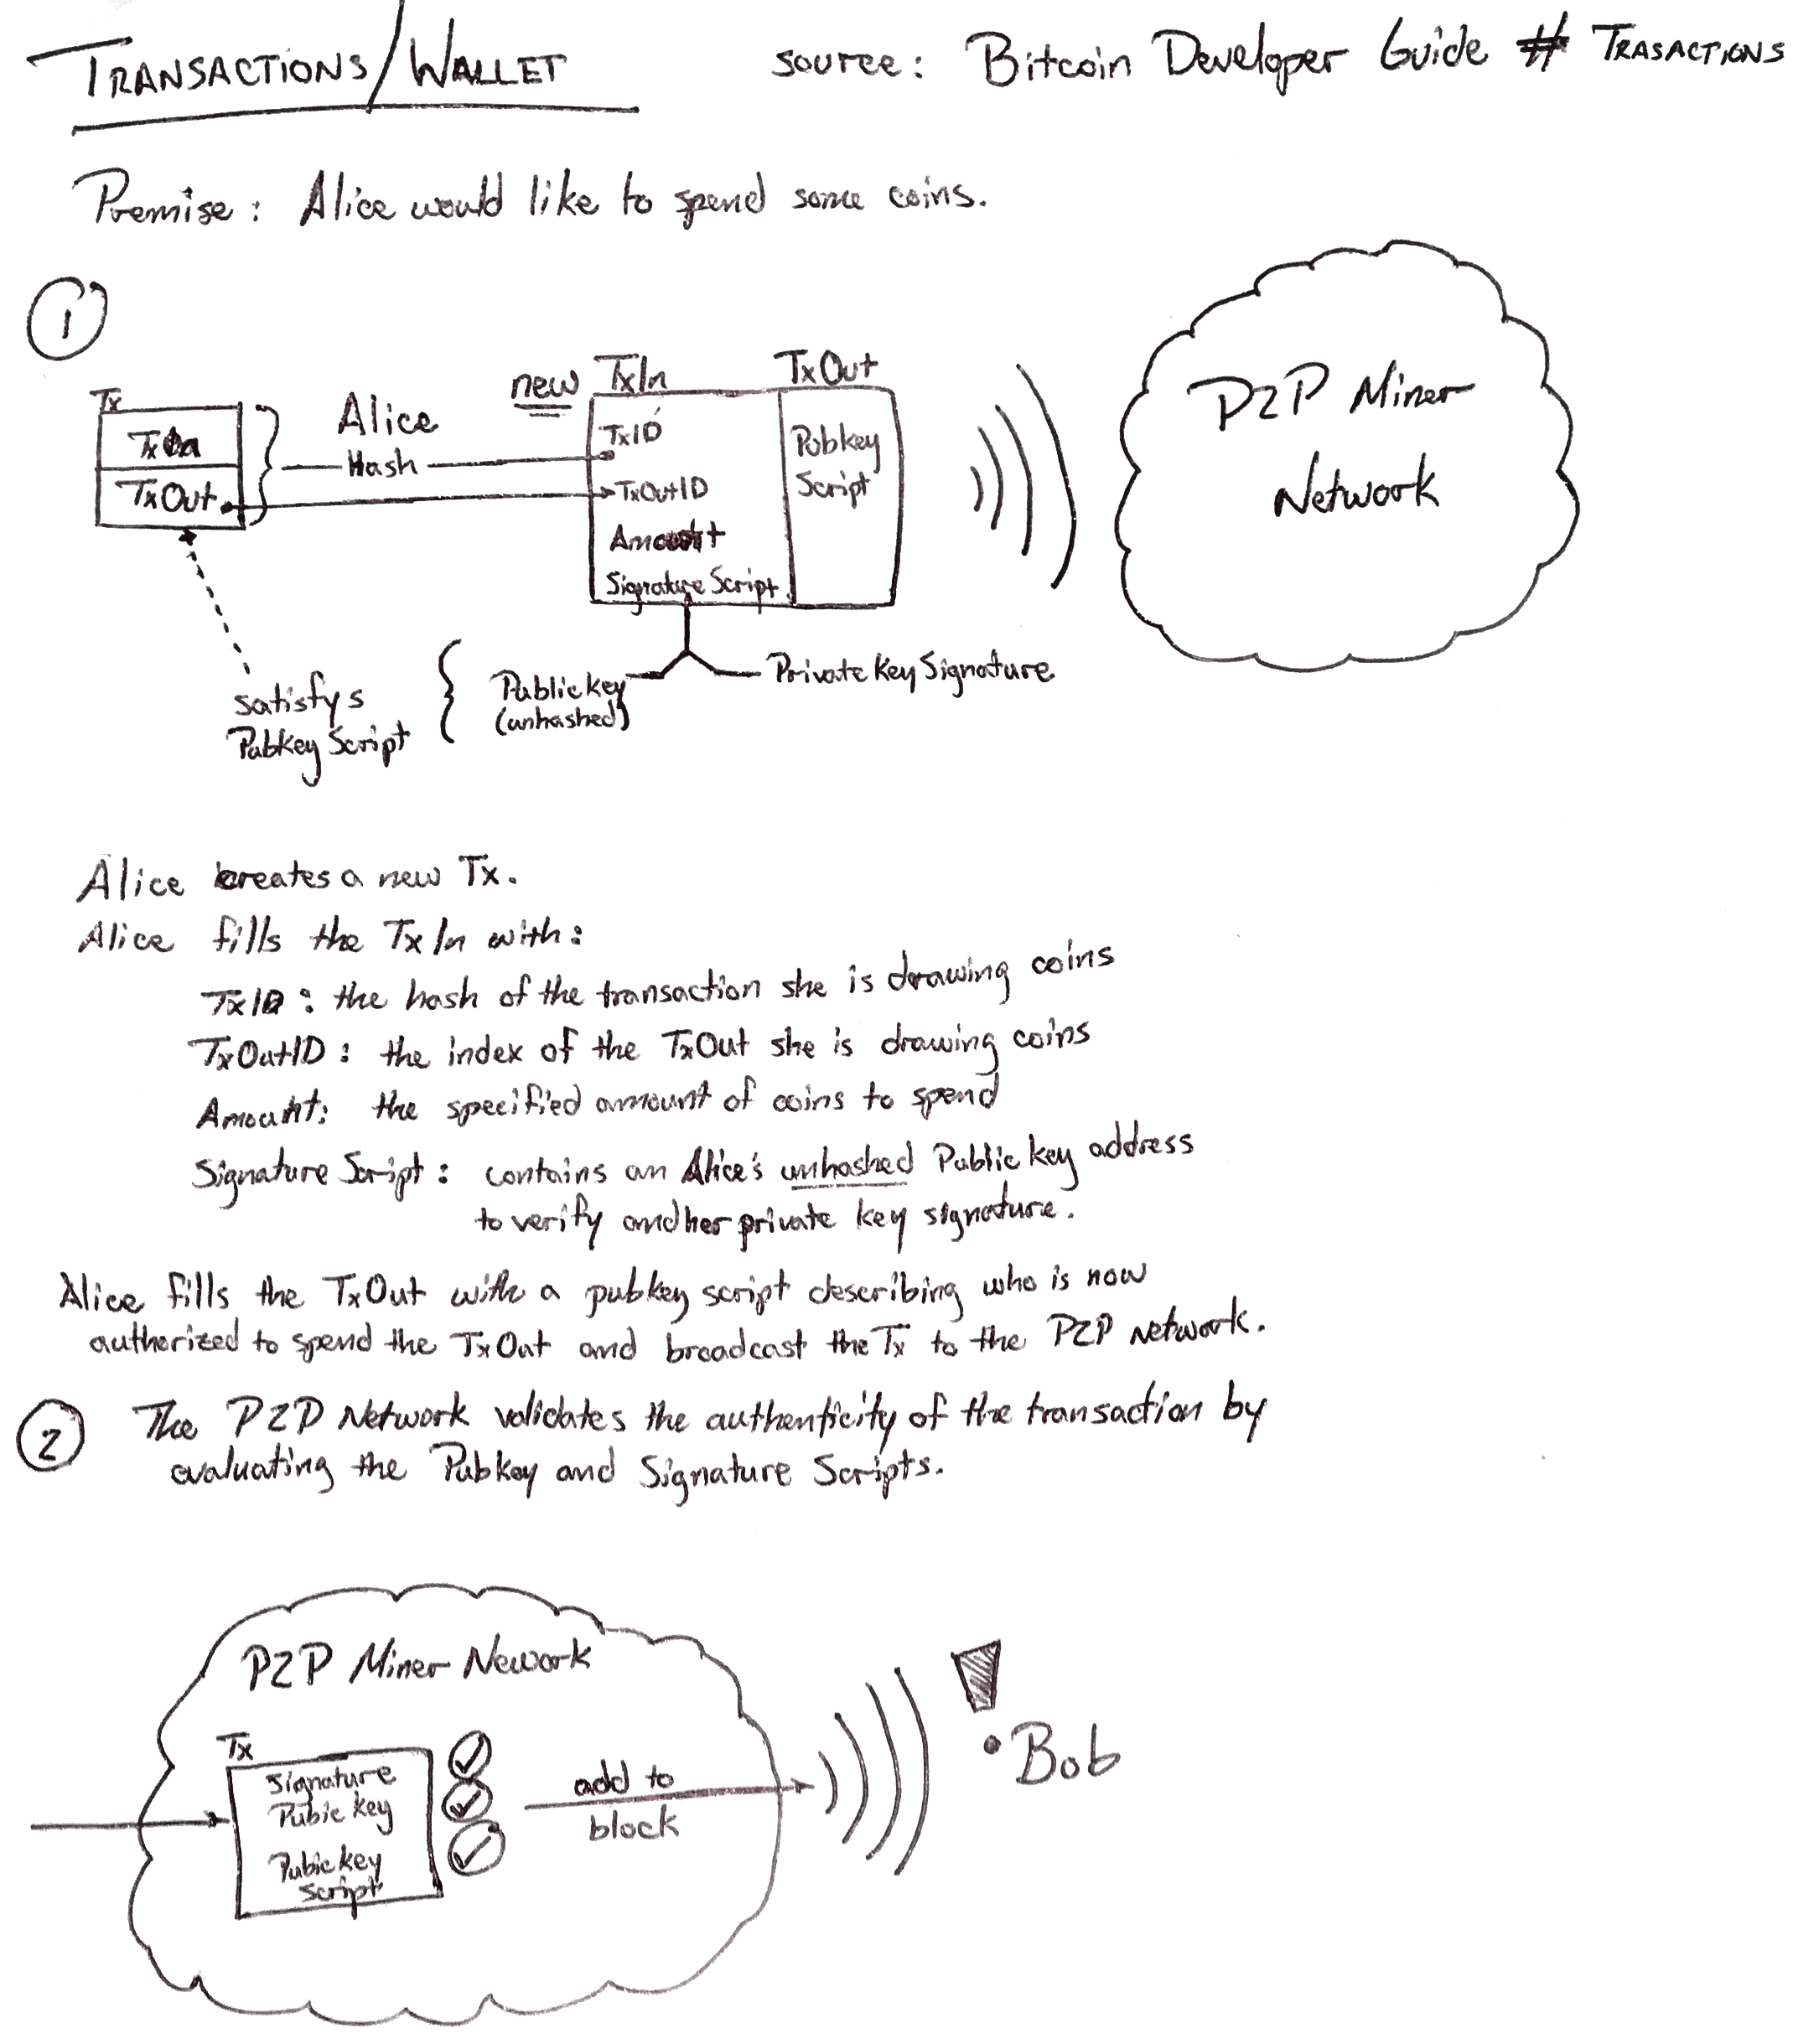 TRANSACTIONS/WALLET
source: Bitcoin Developer Guide # TRASACTIONS
Premise: Alice would like to spend some coins.
1
Tx
TxIn
TxOut
Alice
Hash
new
TxIn
TxOut
TxID
TxOutID
Amount
Signature Script
Pubkey
Script
P2P Miner
Network
satisfys
Pubkey Script
Public key
(unhashed)
Private Key Signature
Alice creates a new Tx.
Alice fills the TxIn with:
TxID: the hash of the transaction she is drawing coins
TxOutID: the index of the TxOut she is drawing coins
Amount: the specified amount of coins to spend
Signature Script: contains an Alice's unhashed Public key address
to verify and her private key signature.
Alice fills the TxOut with a pubkey script describing who is now
authorized to spend the TxOut and broadcast the Tx to the P2P network.
2
The P2P Network validates the authenticity of the transaction by
evaluating the Pubkey and Signature Scripts.
P2P Miner Nework
Tx
Signature
Pubic key
Pubic key
script
add to
block
Bob